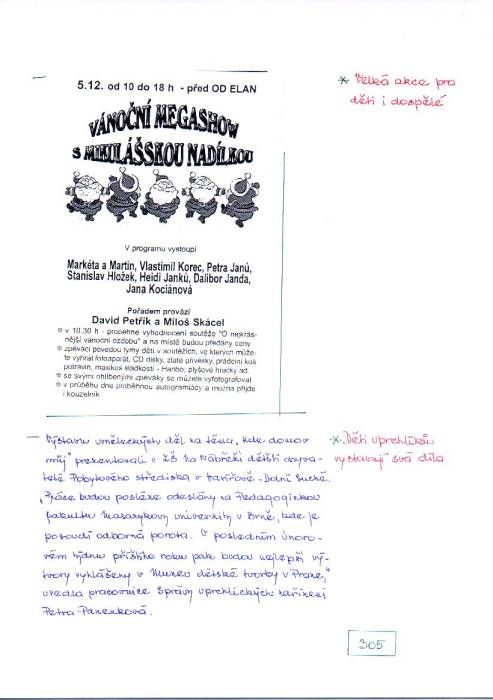 5.12. od 10 do 18 h - před OD ELAN
VÁNOČNÍ MEGASHOW
S MIKULÁŠSKOU NADÍLKOU
V programu vystoupí
Markéta a Martin, Vlastimil Korec, Petra Janů,
Stanislav Hložek, Heidi Janků, Dalibor Janda,
Jana Kociánová
Pořadem provází
David Petřík a Miloš Skácel
v 10.30 h - proběhne vyhodnocení soutěže "O nejkrás-
nější vánoční ozdobu" a na místě budou předány ceny
zpěváci povedou týmy dětí v soutěžích, ve kterých může-
te vyhrát fotoaparát, CD disky, zlaté přívěsky, prádelní koš
potravin, maxikoš sladkostí - Haribo, plyšové hračky ad.
se svými oblíbenými zpěváky se můžete vyfotografovat
v průběhu dne proběhnou autogramiády a možná přijde
i kouzelník
* Velká akce pro
děti i dospělé
— Výstavu uměleckých děl na téma „Kde domov
můj" prezentovali v ZŠ na Nábřeží dětští obyva-
telé Pobytového střediska v Havířově - Dolní Suché.
„Práce budou posléze odeslány na Pedagogickou
fakultu Masarykovy univerzity v Brně, kde je
posoudí odborná porota. V posledním únoro-
vém týdnu příštího roku pak budou nejlepší vý-
tvory vyhlášeny v Muzeu dětské tvorby v Praze,"
uvedla pracovnice Správy uprchlických zařízení
Petra Panenková.
* Děti uprchlíků
vystavují svá díla
305